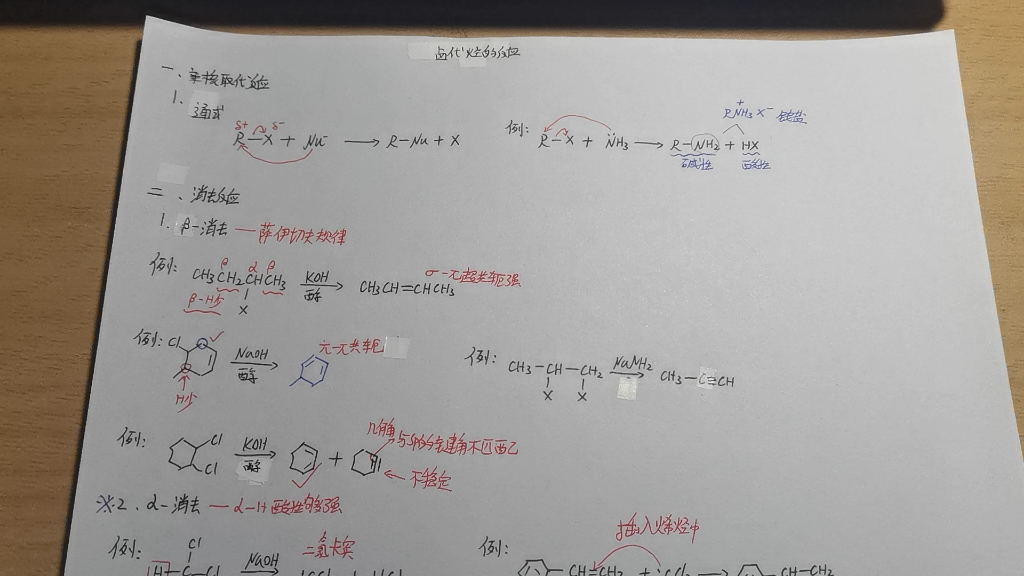 卤代烃的反应
一、亲核取代反应
1. 通式
δ+ δ-
R—X + Nu⁻ → R—Nu + X
例: R—X + NH₃ → R—NH₂ + HX
RNH₃X⁻ 铵盐
+
碱性 酸性
二、消去反应
1. β-消去 — 萨伊切夫规律
例: CH₃CH₂CHCH₃ KOH 醇 CH₃CH=CHCH₃ σ-π超共轭强
β α β
β-H少 X
例: Cl NaOH 醇 π-π共轭
H少
例: CH₃—CH—CH₂ NaNH₂ CH₃—C≡CH
X X
例: Cl Cl KOH 醇 +
几何角与sp的键角不匹配
← 不稳定
※2. α-消去 — α-H酸性够强
例: Cl NaOH 二氯卡宾
H—C—Cl
例: 插入烯烃中
CH=CH₂ + :CCl₂ → CH—CH₂